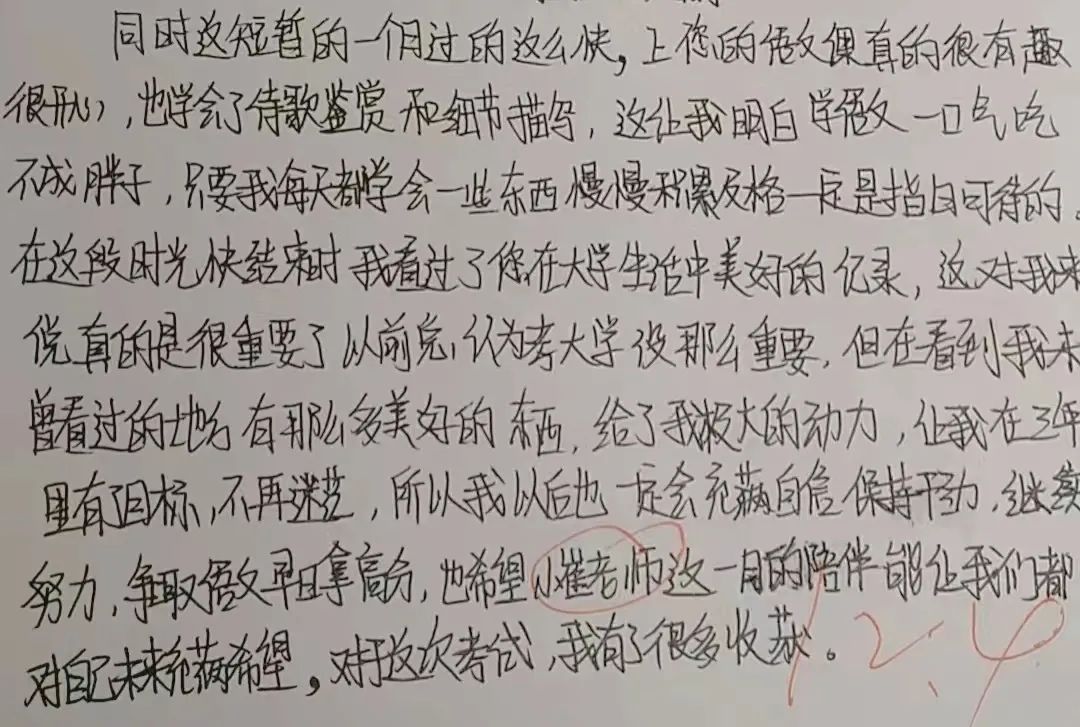 同时这短暂的一个月过的这么快，上您的语文课真的很有趣
很开心，也学会了诗歌鉴赏和细节描写，这让我明白学语文一口气吃
不成胖子，只要我每天都学会一些东西慢慢积累及格一定是指日可待的。
在这段时光快结束时我看过了您在大学生活中美好的记录，这对我来
说真的是很重要了以前总认为考大学没那么重要，但在看到我未
曾看过的地方有那么多美好的东西，给了我极大的动力，让我在三年
里有了目标，不再迷茫，所以我以后也一定会充满自信保持干劲，继续
努力，争取语文早日拿高分，也希望小崔老师这一月的陪伴能让我们都
对自己未来充满希望，对于这次考试，我有了很多收获。
12.4